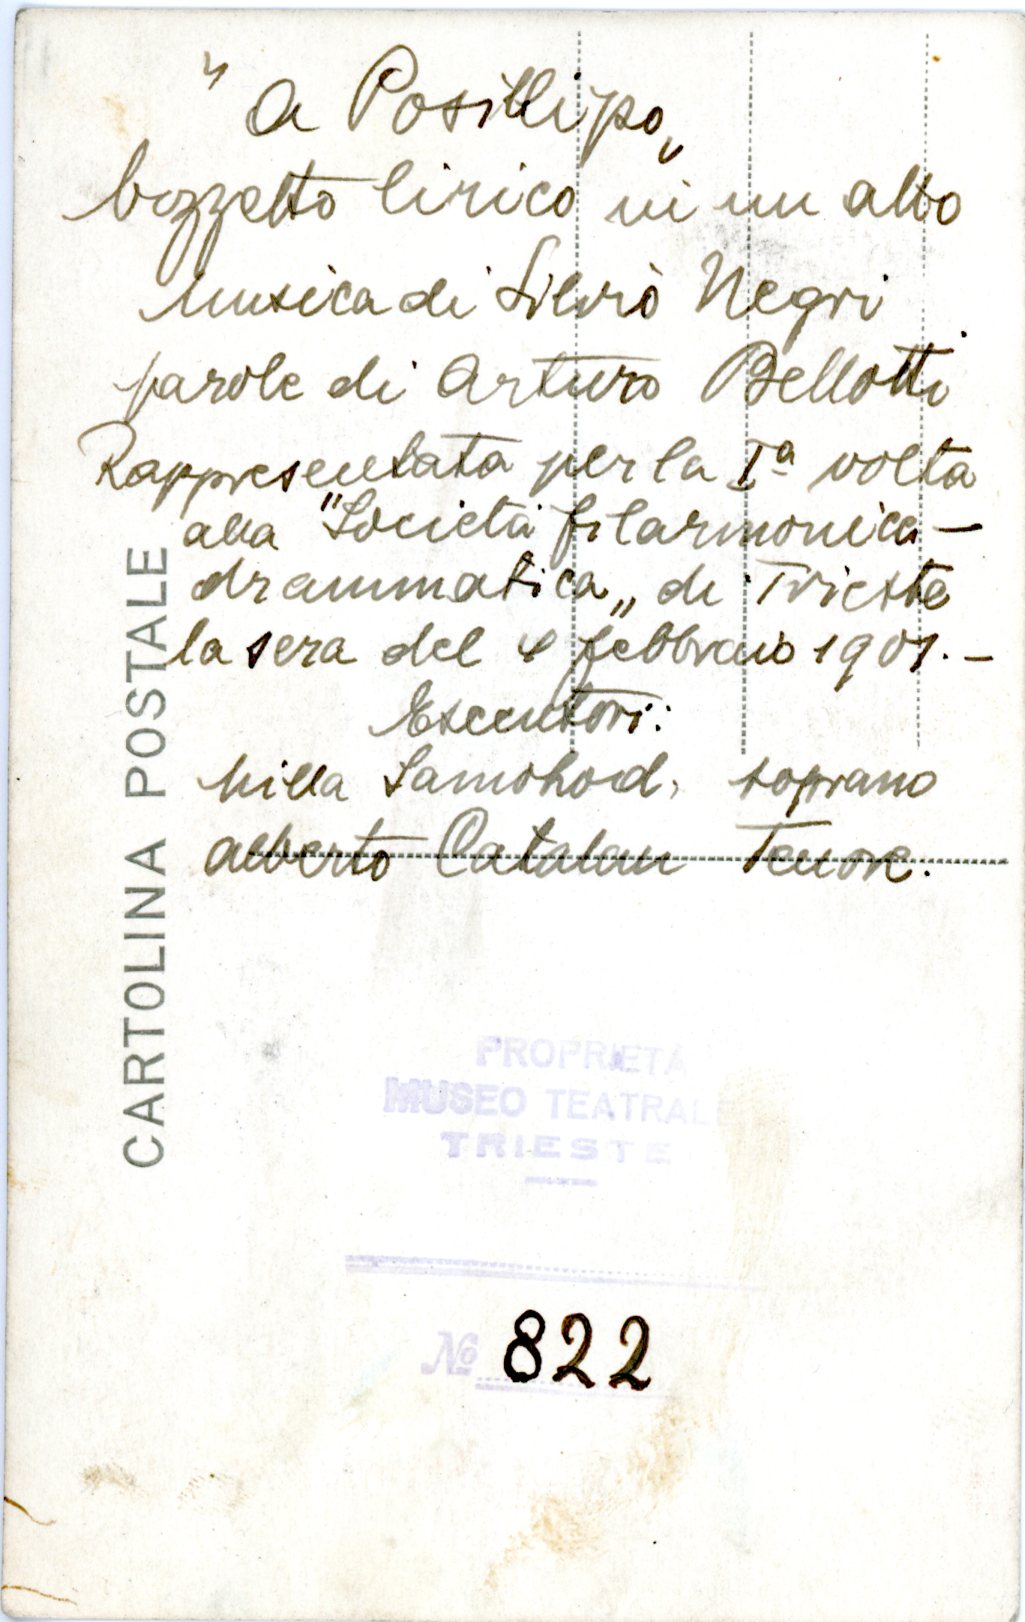 "A Posillipo„
bozzetto lirico in un atto
musica di Silvio Negri
parole di Arturo Bellotti
Rappresentata per la Iª volta
alla "Società filarmonica -
drammatica„ di Trieste
la sera del 4 febbraio 1901. -
Esecutori:
Milla Samohod, soprano
Alberto Catalan Tenore.
CARTOLINA POSTALE
PROPRIETÀ
MUSEO TEATRALE
TRIESTE
No 822